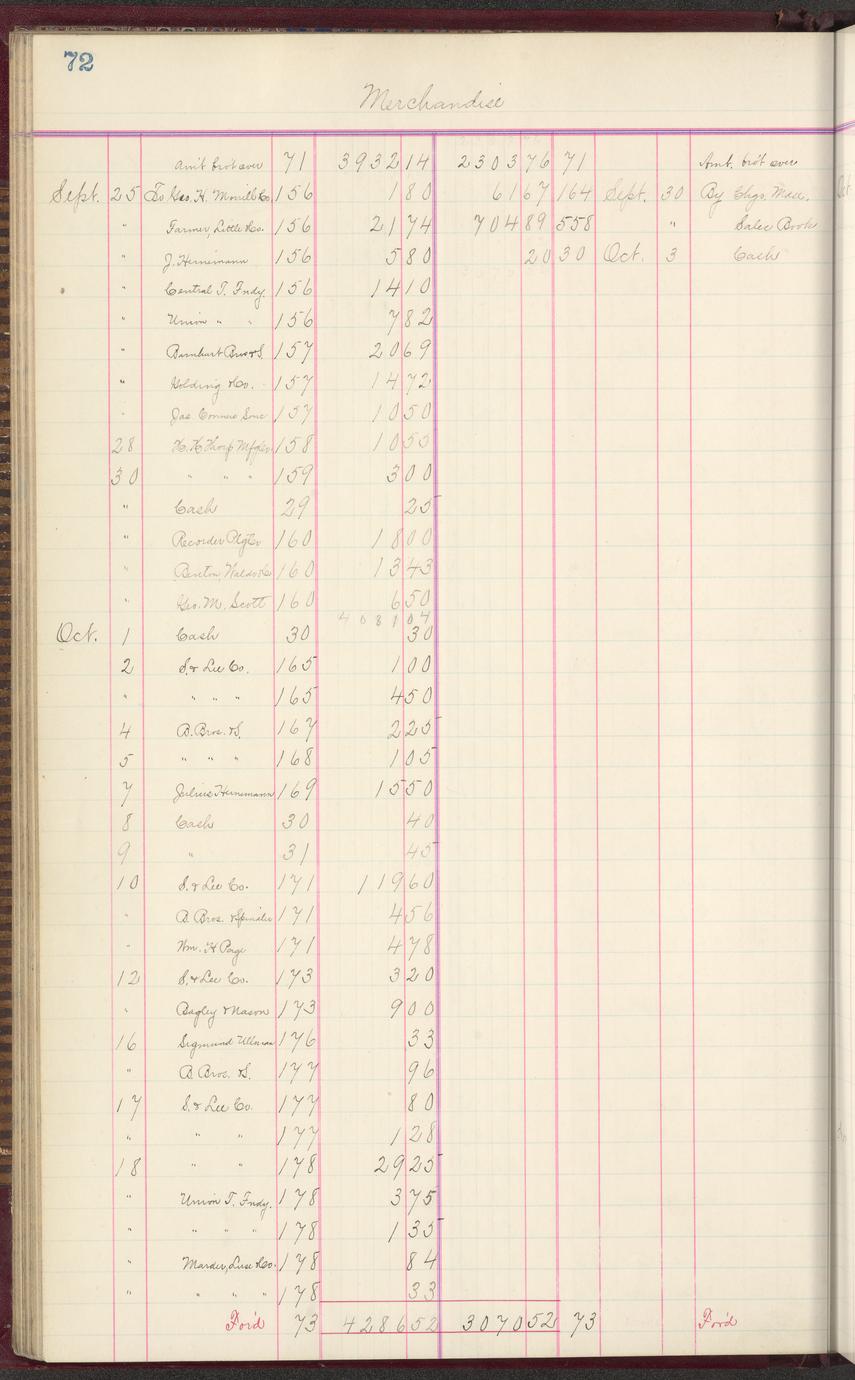 72
Merchandise
Am't bro't over 71 3932 14 2303 76 71 Amt. bro't over
Sept. 25 To Geo. H. Morrill Co. 156 1 80 61 67 164 Sept. 30 By Chgs. Mdse.
" Farmer, Little & Co. 156 21 74 704 89 558 " Sales Book
" J. Heinemann 156 5 80 20 30 Oct. 3 Cash
" Central T. Fndy. 156 14 10
" Union " " 156 7 82
" Barnhart Bros & S. 157 20 69
" Golding & Co. 157 14 72
" Jas. Conners Sons 157 10 50
28 H. H. Thorp Mfg Co. 158 10 55
30 " " " 159 3 00
" Cash 29 25
" Recorder Ptg Co 160 18 00
" Benton, Waldo & Co 160 13 43
" Geo. M. Scott 160 6 50
4081 04
Oct. 1 Cash 30 30
2 S. & Lee Co. 165 1 00
" " " " 165 4 50
4 B. Bros. & S. 167 2 25
5 " " " 168 1 05
7 Julius Heinemann 169 15 50
8 Cash 30 40
9 " 31 45
10 S. & Lee Co. 171 119 60
" B. Bros. & Spindler 171 4 56
" Wm. H. Page 171 4 78
12 S. & Lee Co. 173 3 20
" Bagley & Mason 173 9 00
16 Sigmund Ullman 176 33
" B. Bros. & S. 177 96
17 S. & Lee Co. 177 80
" " " 177 1 28
18 " " 178 29 25
" Union T. Fndy. 178 3 75
" " " " 178 1 35
" Marder, Luse & Co. 178 84
" " " " 178 33
For'd 73 4286 52 3070 52 73 For'd